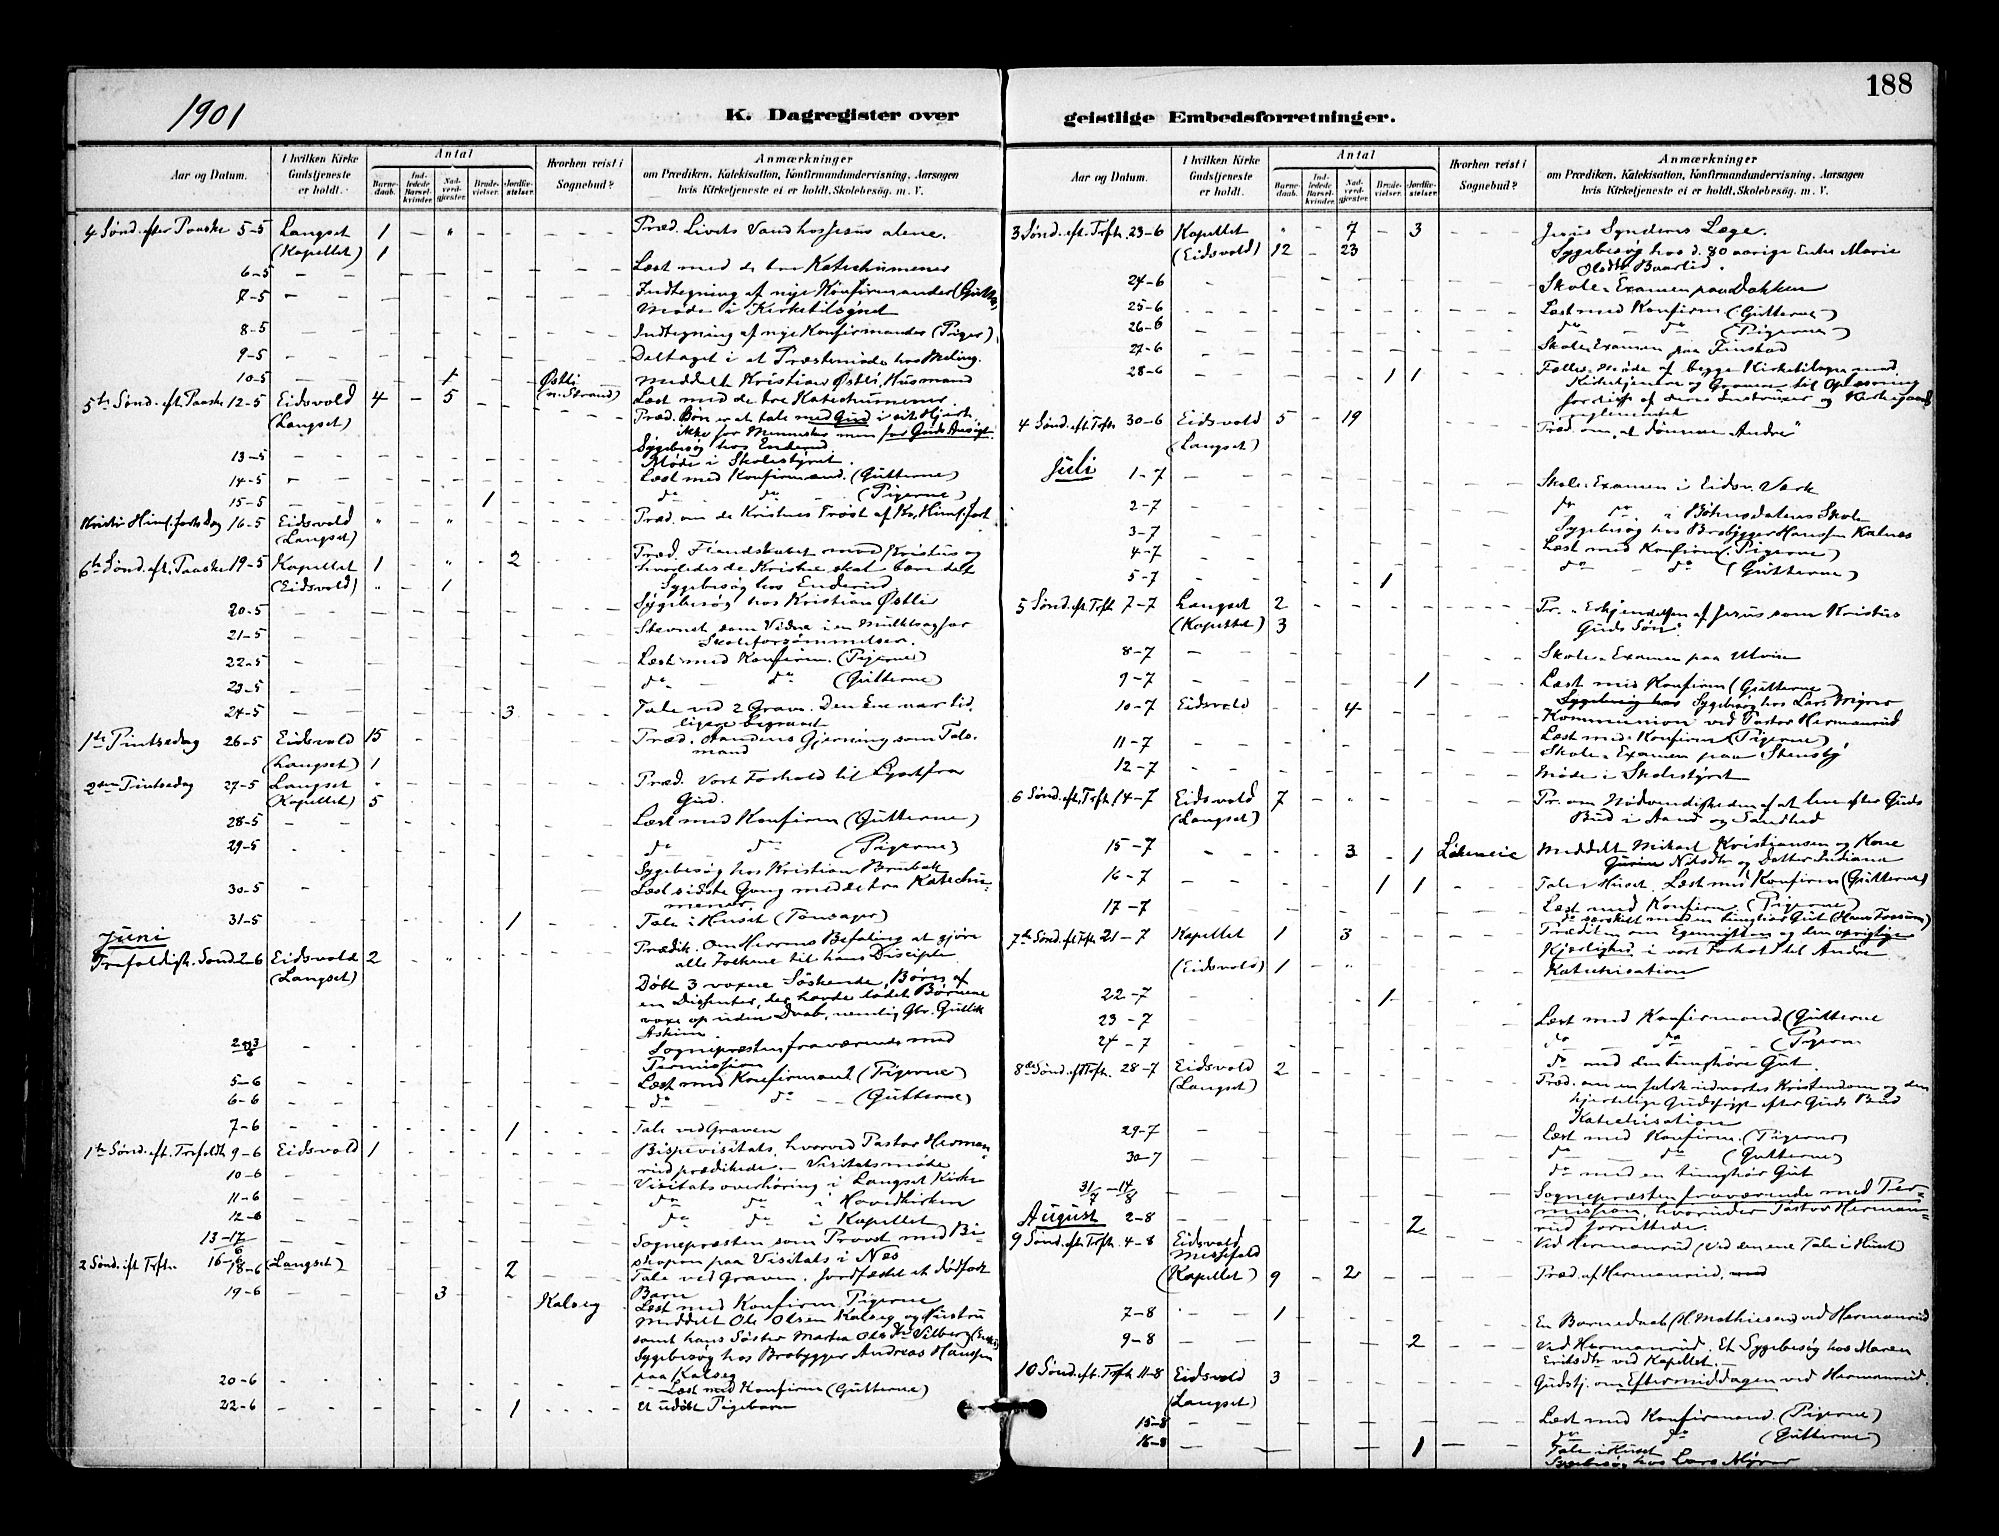 188
1901
K. Dagregister over
geistlige Embedsforretninger.
Aar og Datum.
I hvilken Kirke Gudstjeneste er holdt.
Antal
Barnedaab.
Indledede Barselkvinder.
Nadverdgjester.
Brudevielser.
Jordfæstelser.
Hvorhen reist i Sognebud?
Anmærkninger
om Prædiken, Katekisation, Konfirmandundervisning, Aarsagen
hvis Kirketjeneste ei er holdt, Skolebesøg. m. V.
4 Sønd. efter Paaske 5-5 Langset 1 — " Præd. Livets Vand hos Jesus alene.
(Kapellet) 1
6-5 Læst med de tre Katechumener
7-5 Indtegning af nye Konfirmander
Møde i Kirketilsynet
8-5 Indtegning af nye Konfirmander (Piger)
9-5 Deltaget i et Præstemøde hos Meling.
10-5 1 Østli Meddelt Kristian Østli, Husmand
Læst med de tre Katechumener
5te Sønd. eft. Paaske 12-5 Eidsvold 4 — 5 Præd. Bøn er at tale med Gud i sit Hjerte
(Langset) ikke for Mennesker men for Guds Ansigt
Sygebesøg hos Enderud
13-5 Møde i Skolestyret.
14-5 Læst med Konfirmand. (Gutterne)
15-5 1 do do (Pigerne)
Kristi Himf. farts Dag 16-5 Eidsvold " " Præd. om de Kristnes Trøst af Kr. Himf.fart
(Langset)
6te Sønd. eft. Paaske 19-5 Kapellet 1 — " 2 Præd. Fiendskabet mod Kristus og
(Eidsvold) " 1 hvorledes de Kristne skal bære det
Sygebesøg hos Enderud
20-5 Sygebesøg hos Kristian Østli
21-5 Stevnet som Vidne i en Mulktsag for
Skoleforsømmelser.
22-5 Læst med Konfirm. (Pigerne)
23-5 do do (Gutterne)
24-5 3 Tale ved 2 Grave. Den Ene var tid
ligere begravet
1ste Pintsedag 26-5 Eidsvold 15 Præd. Aandens Gjerning som Tals
(Langset) 1 mand
2den Pintsedag 27-5 Langset " Præd. Vort Forhold til Lyset fra
(Kapellet) 5 Gud.
28-5 Læst med Konfirm (Gutterne)
29-5 do do (Pigerne)
Sygebesøg hos Kristian
30-5 Læst sidste Gang med de tre Katechu-
mener.
31-5 1 Tale i Huset (Tønsager)
Juni
Trefoldigh. Sønd. 2-6 Eidsvold 2 " Prædik. Om Herrens Befaling at gjøre
(Langset) alle Folkene til hans Disciple
Døbt 3 voxne Søskende, Børn af
en Dissenter, der havde ladet Børnene
voxe op uden Daab, nemlig Gbr. Gullik
Askim
Sognepræsten fraværende med
Permission
5-6 Læst med Konfirmand (Pigerne)
6-6 do do (Gutterne)
7-6 1 Tale ved Graven
1ste Sønd. eft. Trefoldh 9-6 Eidsvold 1 Bispevisitats, hvorved Pastor Herman
rud prædikede. — Visitatsmøde
10-6 Visitatsoverhøring i Langset Kirke
11-6 do do i Hovedkirken
12-6 do do i Kapellet
13-17/6 Sognepræsten som Provst med Bi-
skopen paa Visitats i Nes
2 Sønd. eft Trefth. 16-6 (Langset)
18-6 2 Tale ved Graven. Jordfæstet et dødfødt
Barn
19-6 3 Kalseg Læst med Konfirm Pigerne
Meddelt Ole Olsen Kalseg og Hustru
samt hans Søster Martea Olsdtr
Sygebesøg hos Brobygger Andreas Hanssen
paa Kalseg
20-6 Læst med Konfirm (Gutterne)
22-6 1 et udøbt Pigebarn
Aar og Datum.
I hvilken Kirke Gudstjeneste er holdt.
Antal
Barnedaab.
Indledede Barselkvinder.
Nadverdgjester.
Brudevielser.
Jordfæstelser.
Hvorhen reist i Sognebud?
Anmærkninger
om Prædiken, Katekisation, Konfirmandundervisning, Aarsagen
hvis Kirketjeneste ei er holdt, Skolebesøg. m. V.
3 Sønd. eft. Trfth. 23-6 Kapellet " — 7 — 3 Jesus Synderes Læge.
(Eidsvold) 12 — 23 Sygebesøg hos d. 80 aarige Enke Marie
Olsdtr
24-6 Skole-Examen paa Dokken
25-6 Læst med Konfirm (Gutterne)
26-6 do do (Pigerne)
27-6 Skole-Examen paa Finstad
28-6 1 1 Fælles-Møde af begge Kirketilsyn med
Kirketjenere og Gravere til Oplæsning
4 Sønd. eft. Trfth 30-6 Eidsvold 5 — 19 Præd. om „at dømme Andre"
(Langset)
Juli 1-7 Skole-Examen i Eidsv. Værk
2-7 do do i Bøhnsdalens Skole
3-7 Sygebesøg hos Brobygger Hanssen Kalseg
4-7 Læst med Konfirm (Pigerne)
5-7 1 do do (Gutterne)
5 Sønd. eft. Trfth 7-7 Langset 2 Pr. „Erkjendelsen af Jesus som Kristus
(Kapellet) 3 Guds Søn".
8-7 Skole-Examen paa Ulvin
9-7 1 Læst med Konfirm (Gutterne)
10-7 Eidsvold 4 Sygebesøg hos Lars
Kommunion ved Pastor Hermanrud
11-7 Læst med Konfirm (Pigerne)
Skole-Examen paa Stensby
12-7 Møde i Skolestyret
6 Sønd. eft. Trfth 14-7 Eidsvold 7 " Pr. om Nødvendigheden af at leve efter Guds
(Langset) Bud i Aand og Sandhed
15-7 3 — 1 Meddelt Mikael Kristiansen og Kone
Nilsdtr og Datter Indiana
16-7 1 1 Tale i Huset. Læst med Konfirm (Gutterne)
17-7 Læst med Konfirm. (Pigerne)
do særskilt med en tunghør Gut
7de Sønd. eft Trfth 21-7 Kapellet 1 3 Prædiken om Egennytten og den oprigtige
(Eidsvold) 1 Kjærlighed i vort Forhold til Andre
Katekisation
22-7 1
23-7 Læst med Konfirmand (Gutterne
24-7 do do Pigerne
do med den tunghøre Gut.
8de Sønd. eft Trfth. 28-7 Eidsvold 2 Præd. om en falsk udvortes Kristendom og den
(Langset) hjertelige Gudsfrygt efter Guds Bud
Katechisation
29-7 Læst med Konfirm. (Pigerne)
30-7 do do (Gutterne)
do med en tunghør Gut
31/7 — 14/8 Sognepræsten fraværende med Per-
mission, hvorunder Pastor Herman-
rud forrettede.
August 2-8 2 Ved Hermanrud (Ved den ene Tale i Huset)
9 Sønd. eft. Trfth. 4-8 Eidsvold
Messefald
(Kapellet) 9 — 2 Præd. af Hermanrud.
7-8 1 En Barnedaab (H. Mathiesen) ved Hermanrud
9-8 2 Ved Hermanrud. Et Sygebesøg hos Maren
Eriksdtr ved Kapellet.
10 Sønd. eft. Trfth 11-8 Eidsvold 3 Gudstj. om Eftermiddagen ved Hermanrud.
(Langset)
15-8 Læst med Konfirmand. (Pigerne)
16-8 1 do do (Gutterne)
Tale i Huset
Sygebesøg hos Lars